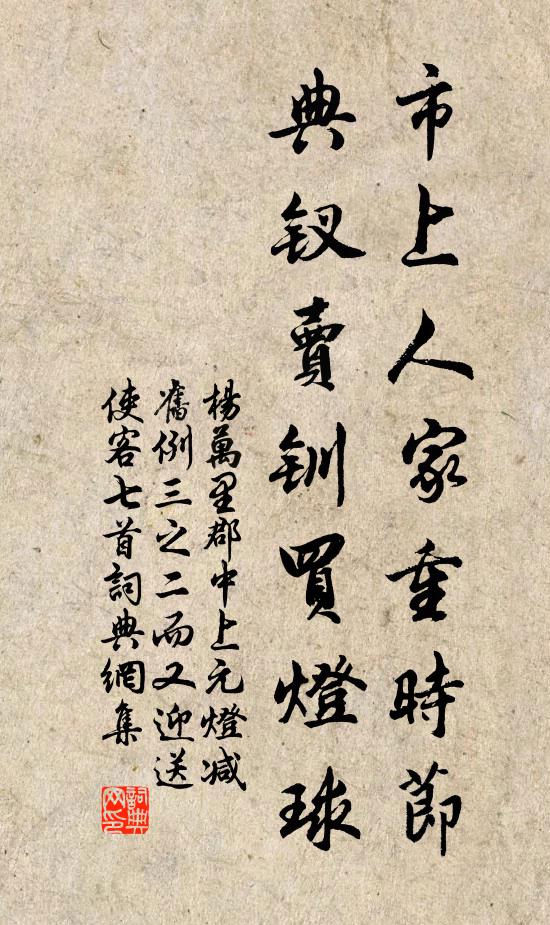 市上人家重時節
典釵賣釧買燈球
楊萬里郡中上元燈减
舊例三之二而又迎送
使客七首詞典網集
詞典网印